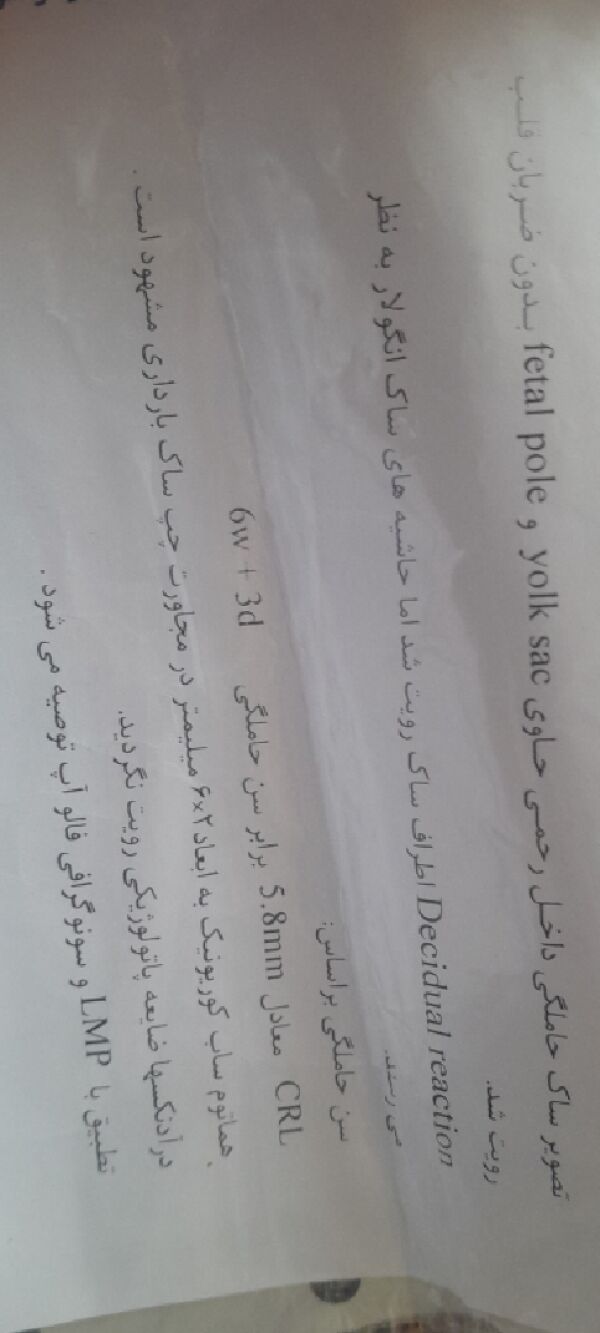 تصویر ساک حاملگی داخل رحمی حاوی yolk sac و fetal pole بدون ضربان قلب
رویت شد.
Decidual reaction اطراف ساک رویت شد اما حاشیه های ساک انگولار به نظر
می رسند.
سن حاملگی براساس:
CRL معادل 5.8mm برابر سن حاملگی 6w + 3d
هماتوم ساب کوریونیک به ابعاد ۶x۲ میلیمتر در مجاورت چپ ساک بارداری مشهود است .
درآدنکسها ضایعه پاتولوژیکی رویت نگردید.
تطبیق با LMP و سونوگرافی فالو آپ توصیه می شود .